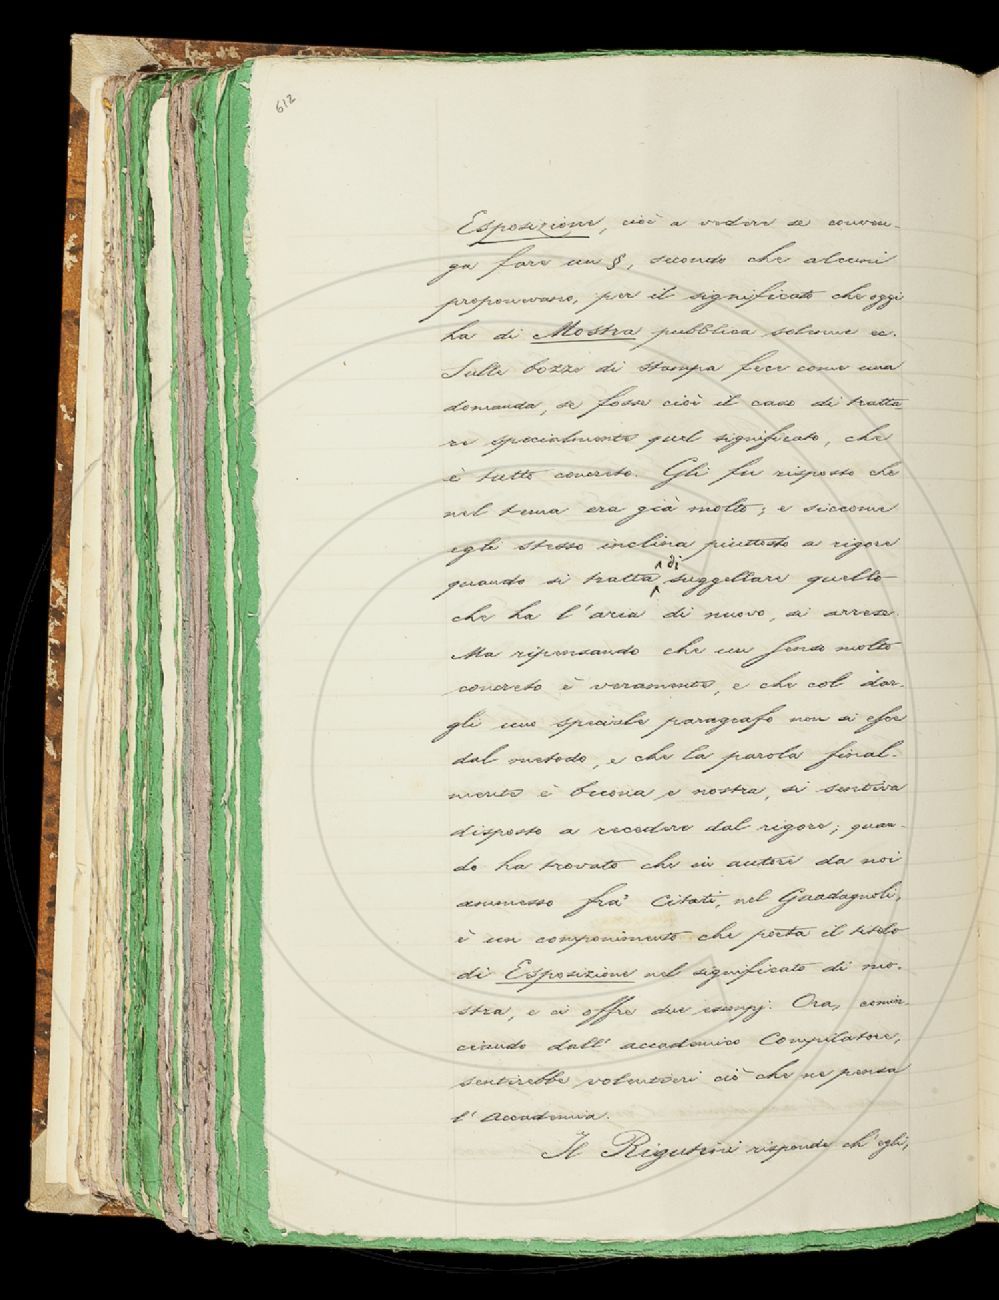 612
Esposizione, cioè a vedere se conven-
ga fare un §, secondo che alcuni
proponevano, per il significato che oggi
ha di Mostra pubblica solenne ec.
Sulle bozze di stampa fece come una
domanda, se fosse cioè il caso di tratta
re specialmente quel significato, che
è tutto concreto. Gli fu risposto che
nel tema era già molto; e siccome
egli stesso inclina piuttosto a rigore
quando si tratta di suggellare quello
che ha l'aria di nuovo, si arrese.
Ma ripensando che un senso molto
concreto è veramente, e che col dar-
gli uno speciale paragrafo non si esce
dal metodo, e che la parola final-
mente è buona e nostra, si sentiva
disposto a recedere dal rigore; quan-
do ha trovato che in autore da noi
ammesso fra' Citati, nel Guadagnoli,
è un componimento che porta il titolo
di Esposizione nel significato di mo-
stra, e ci offre due esempj. Ora, comin-
ciando dall'accademico Compilatore,
sentirebbe volentieri ciò che ne pensa
l'Accademia.
Il Rigutini risponde ch'egli,